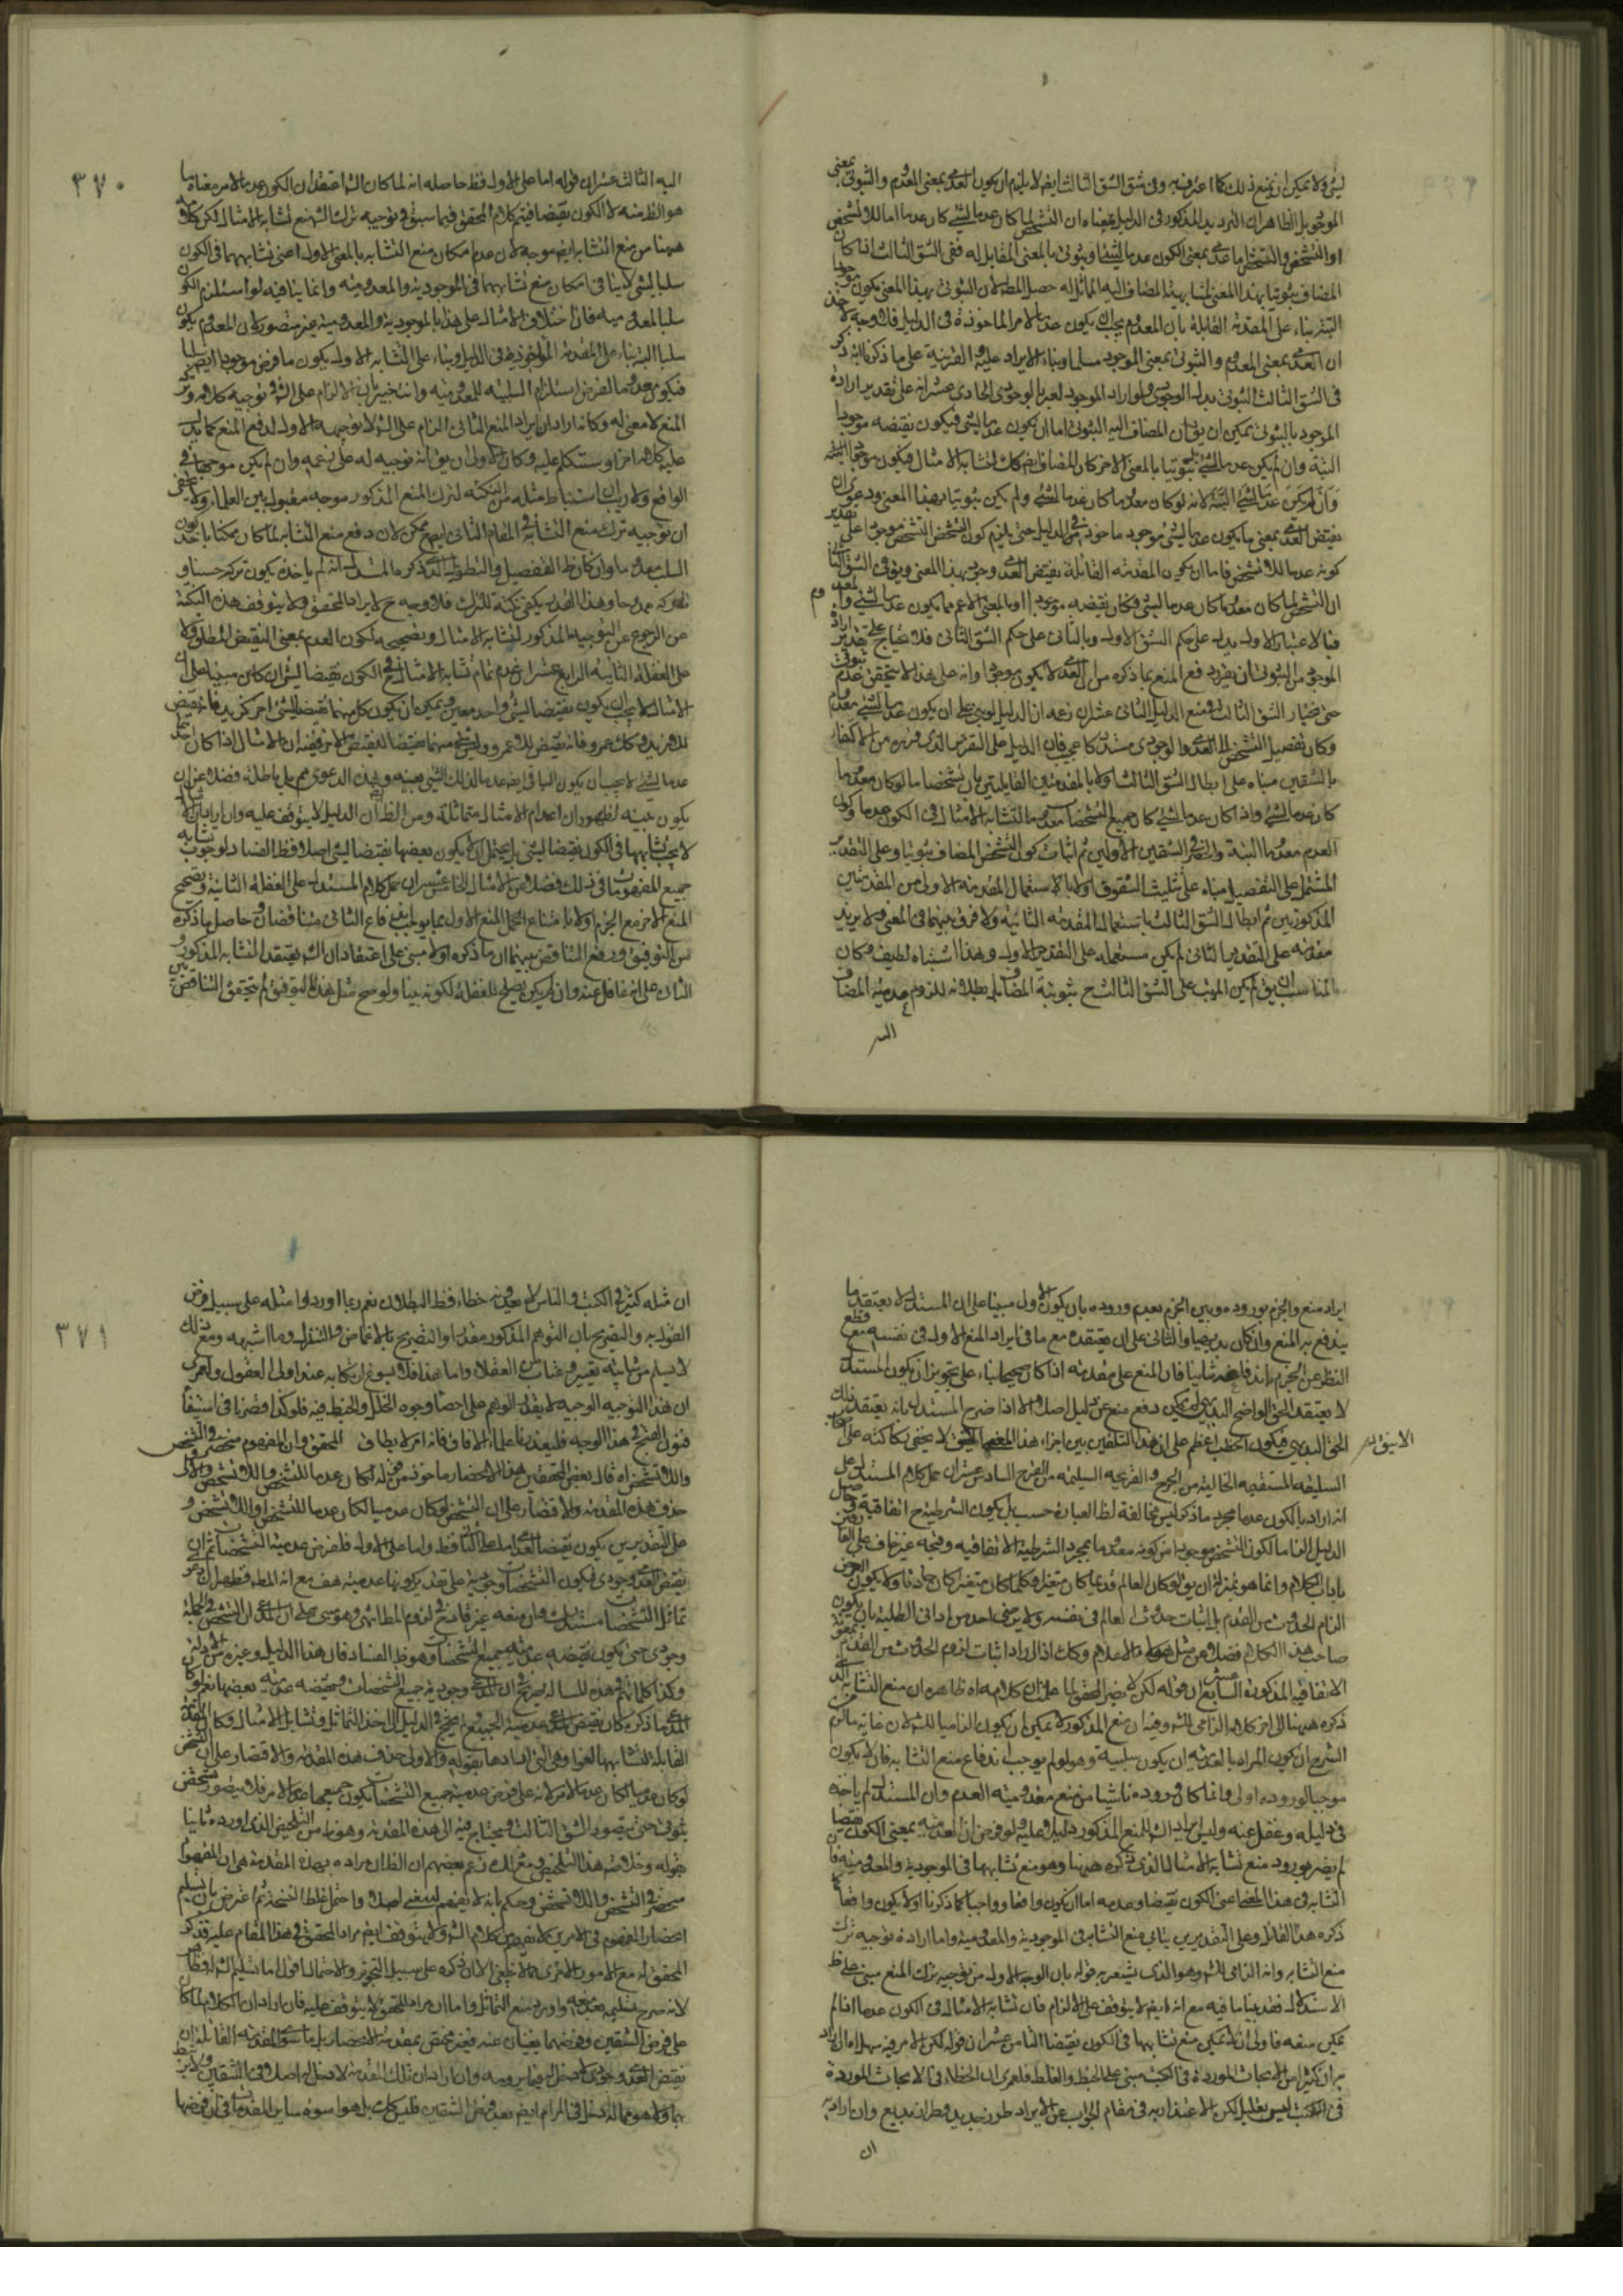 ليثى ولا يمكن ان يمنع ذلك كما اعترف به وفى شق الشق الثالث ايضا لا يلزم ان يكون العدمى بمعنى المعدوم والثبوتى بمعنى
الموجود بل الظاهر ان الترديد المذكور فى الدليل معناه ان التشخص لما كان عدما لشئ كان عدما اما للاتشخص
المضاف ثبوتيا بهذا المعنى لمشابهته المضاف اليه المماثل له حصل المط لان الثبوتى بهذا المعنى يكون موجودا
البتة بناء على المقدمة القائلة بان المعدوم يجب ان يكون عدما لامر الماخوذة فى الدليل فلا وجه لاخذ
ان العدمى بمعنى المعدوم والثبوتى بمعنى الموجود مسلما وبناء الايراد عليه والقرينة على ما ذكرنا انه ذكر
فى الشق الثالث الثبوتى بدل الوجودى ولو اراد الموجود لعبر بالوجودى الحادى عشر انه على تقدير ارادة
الموجود بالثبوتى يمكن ان يق ان المضاف اليه الثبوتى اما ان يكون عدما لشئ فيكون نقيضه موجودا
البتة وان لم يكن عدما لشئ بل ثبوتيا بالمعنى الاخر كان المضاف ايضا كك لتشابه الامثال فيكون موجودا البتة
وان لم يكن عدما لشئ البتة لانه لو كان معدوما كان عدما لشئ ولم يكن ثبوتيا بهذا المعنى ودعوى ان
نقيض العدمى بمعنى ما يكون عدما لشئ موجود ماخوذ فى الدليل حتى يلزم كون التشخص موجودا على تقدير
كونه عدما للاتشخص فاما ان يكون المقدمة القائلة نقيض العدمى وجودى بهذا المعنى ويق فى الشق الثانى
ان التشخص لما كان معدوما كان عدما لشئ فكان نقيضه موجودا او بالمعنى الاعم مما يكون عدما لشئ والمعدوم
فبالاعتبار الاول يدل على حكم الشق الاول وبالثانى على حكم الشق الثانى فلا يحتاج على تقدير ارادة
الموجود من الثبوتى ان يفرد دفع المنع بما ذكره من ان العدمى لا يكون موجودا وانه على هذا لا يتحقق عدم ثبوتى
حتى يختار الشق الثالث ويمنع الدليل الثانى عشر ان زعم ان الدليل لو بنى على ان يكون عدما لشئ معدوم
وكان تفصيل التشخص الى العدمى والوجودى مستدركا عجيب فان الدليل على التقرير الذى قرره من الاكتفاء
بالشقين مبناه على ابطال الشق الثالث اولا بالمقدمتين القائلتين بان تشخصا ما لو كان معدوما
كان عدما لشئ واذا كان عدما لشئ كان جميع التشخصات معدوما لتشابه الامثال فى الكون عدما وكون
العدم معدوما البتة وان فى الشقين الاولين ثم اثبات كون التشخص المضاف ثبوتيا وعلى التقدير
المشتمل على التفصيل مبناه على تثليث الشقوق اولا بالاستعمال المقدمة الاولى من المقدمتين
المذكورتين ثم ابطال الشق الثالث باستعمال المقدمة الثانية ولا فرق بينهما فى المعنى ولا يزيد
مقدمة على التقدير الثانى لم يكن مستعملة على التقدير الاول وهذا اشتباه لطيف وكان
المناسب ان يق لم يكن المرتب على الشق الثالث ح ثبوتية المضاف بل بطلانه للزوم عدمية المضاف
اليه
٣٧٠
اليه الثالث عشر ان قوله اما على الاول فظ حاصله انه لما كان الش اعتقد ان الكون عدما لامر مغناه ما
هو الظ منه لا الكون نقيضا فيتم كلام المحقق فيما سبق فى توجيه ترك الش منع تشابه الامثال لكن كلامه
ههنا من منع التشابه ايضا موجه لان عدم امكان منع التشابه بالمعنى الاول اعنى تشابههما فى الكون
سلبا لشئ لا ينافى امكان منع تشابههما فى الموجودية والمعدومية وانما ينافيه لو استلزم الكون
سلبا المعدومية فان اختلاف الامثال على هذا بالموجودية والمعدومية غير متصور لان المعدوم يكون
سلبا البتة بناء على المقدمة الماخوذة فى الدليل وبناء على التشابه الاول يكون ما فرض موجودا ايضا سلبا
فيكون معدوما لفرض استلزام السلبية للمعدومية وانت خبير بان الالزام على الش فى توجيه كلامه وترك
المنع لا معنى له وكانه اراد ان ايراد المنع الثانى الزام على الش لا توجيه الاول لدفع المنع كما يدل
عليه كلامه اخرا وستكلم عليه وكان الاولى ان يق انه توجيه له على زعمه وان لم يكن موجها فى
الواقع ولا ريب ان استنباط مثله من النكتة لترك المنع المذكور موجه مقبول بين العلماء ولا يخفى
ان توجيه ترك منع التشابه فى المقام الثانى ايضا ممكن لان دفع منع التشابه لما كان ممكنا باخذ
عن الرجوع عن التوجيه المذكور لتشابه الامثال وتصحيحه لكون العدم بمعنى النقيض المطلق ولا
على الغفلة الثانية الرابع عشر ان عدم تمام تشابه الامثال فى الكون نقيضا لشئ ان كان مبنيا على ان
الامثال لا يجب ان يكون نقيضا لشئ واحد معين ويمكن ان يكون كل منهما نقيضا لشئ اخر كزيد فانه نقيض
عدما لشئ لا يجب ان يكون الباقى ايضا عدما لذلك الشئ بعينه وهذه الدعوى مم بل باطلة فضلا عن ان
يكون بينة لظهور ان اعدام الامثال متماثلة ومن الظ ان الدليل لا يتوقف عليه وان اراد ان الامثال
لا يجب تشابهها فى الكون نقيضا لشئ بل يحتمل ان لا يكون بعضها نقيضا لشئ اصلا فظ الفساد لوجوب تشابه
جميع المفهومات فى ذلك فضلا عن الامثال الخامس عشر ان حمل كلام المستدل على الغفلة الثانية وتصحيح
المنع الاخر مع الجزم اولا بامتناع الحمل المنع الاول بما يوجب اندفاع الثانى متناقضان وحاصل ما ذكره
من التوفيق ورفع التناقض بينهما ان ما ذكره اولا مبنى على اعتقاد ان الش يعتقد التشابه المذكور
الثانى على انه غافل عنه وان لم يكن يصلح للغفلة لكونه بينا ولو صح مثل هذا التوفيق لم يتحقق التناقض بين
ايراد منع والجزم بوروده وبين الجزم بعدم وروده بان يكون الاول مبنيا على ان المستدل لا يعتقد ما
يندفع به المنع وان كان بديهيا والثانى على ان يعتقده مع ما فى ايراد المنع الاول فى نفسه مع قطع
النظر عن الجزم باندفاعه ثانيا فان المنع على مقدمة اذا كان صحيحا بناء على تجويز ان يكون المستدل
لا يعتقد الحق الواضح البديهى لم يمكن دفع منع عن دليل اصلا الا اذا صرح المستدل بانه يعتقد ذلك
السليقة المستقيمة الخالية من الجرح والقريحة السليمة من القرح السادس عشر ان حمل كلام المستدل على
انه اراد بالكون عدما مجرد ما ذكر ليس مخالفة لظ العبارة حسب بل يكون الشرطية ح اتفاقية وحاصل
بادباب الكلام وانما هو بمنزلة ان يق لو كان العالم قديما كان متغيرا وكلما كان متغيرا كان حادثا ولا يكون الغرض
الزام الحدوث من القدم بل اثبات حدوث العالم فى نفسه ولا يرضى احد من ادانى الطلبة بان يكون
صاحب هذا الكلام فضلا عن مثل هؤلاء الاعلام وكك اذا اراد اثبات لزوم الحدوث من القدم
الاتفاقية المذكورة السابع عشر ان قوله لكن لا يضر المحقق لما علمت ان كلامه اه ظاهره ان منع التشابه الذى
ذكره ههنا الى اخر كلامه الزامى للش وفيه ان منع المذكور لا يمكن ان يكون الزاميا للش لان غاية ما لزم
الشرح ان يكون المراد بالعدمية ان يكون سلبية وهو لو لم يوجب اندفاع منع التشابه فلا يكون
موجبا لوروده اولى وانما كان وروده ناشيا من منع معدومية العدم وان المستدل لم ياخذه
فى دليله وغفل عنه وليس ايراد الش للمنع المذكور دليلا عليه ولو فرض ان العدمية بمعنى الكون نقيضا
لم يضر بورود منع تشابه الامثال الذى ذكره ههنا وهو منع تشابهها فى الموجودية والمعدومية فان
التشابه فى هذا المعنى اعنى الكون نقيضا وعدمه اما ان يكون واقعا وواجبا كما ذكرنا او لا يكون واقعا كما
ذكره هذا القائل وعلى التقديرين يتاتى منع التشابه فى الموجودية والمعدومية واما ارادة توجيه ترك
منع التشابه وانه الزامى للش وهو الذى يشعر به قوله بان الوجه الاول من توجيه ترك المنع مبنى على ظ
الاستدلال فقد بينا ما فيه مع انه ايضا لا يتوقف على الالزام فان تشابه الامثال فى الكون عدما اذا لم
يمكن منعه فاولى ان لا يمكن منع تشابهها فى الكون نقيضا الثامن عشر ان قوله لكن الامر فيه سهل اه ان اراد
به ان كثيرا من الابحاث الموردة فى الكتب مبنى على الخبط والغلط فلعمرى ان الخطاء فى الابحاث الموردة
فى الكتب ليس بقليل لكن الاعتذار به فى مقام الجواب عن الايراد طور جديد وطراز بديع وان اراد به
ان
٣٧١
ان مثله كثير فى الكتب والناس لا يعدونه خطاء فظ البطلان نعم ربما اوردوا مثله على سبيل فرض
القول به والتصريح بان التوهم المذكور مقدر او التصريح بالاغماض والتنزل وما اشبهه ومع ذلك
لا يسلم من شائبة تعيير وعتاب من العقلاء واما هذا فلا يسوغ ارتكابه عند اولى العقول ولعمرى
ان هذا التوجيه الوجيه لا يقدر الوهم على احصاء وجوه الخلل والخبط فيه فلو كنا قصرنا فى استيفاء
فنون القبح فى هذا الوجه فليعذرنا علماء الافاق فانه امر لا يطاق المحقق وان المفهوم منحصر فى التشخص
واللاتشخص اه قال بعض المحققين هذا الانحصار ماخوذ من قوله لكان عدما للتشخص واللاتشخص والاولى
حذف هذه المقدمة والاقتصار على ان التشخص لو كان عدميا لكان عدما للتشخص او اللاتشخص و
على التقديرين يكون نقيضا لعدمى اما على الثانى فظ واما على الاول فلفرض عدمية التشخصات ثم ان
نقيض العدمى وجودى فيكون التشخصات وجودية على تقدير كونها عدمية هف مع انه المط فظهر ان دعوى
تماثل التشخصات مستدرك وان منعه غير قادح فى لزوم المط انتهى وهو مبنى على ان المدعى ان التشخص فى الجملة
وجودى حتى يكون نقيضه عدمية جميع التشخصات وهو ظ الفساد فان هذا الدليل وغيره من الادلة
وكذا كلماتهم فى هذه المسالة صريح فى ان المدعى وجودية جميع التشخصات ونقيضه عدمية بعضها نعم لو كان
المدعى ما ذكره كان نقيض المدعى عدمية الجميع ولم يحتج فى الدليل الى اخذ التماثل وتشابه الامثال وكان المقدمة
القائلة لتشابهها لغوا وهى التى افادها بقوله والاولى حذف هذه المقدمة والاقتصار على ان التشخص
لو كان عدميا لكان عدما لامر لانه على فرض عدمية جميع التشخصات يكون جميعها عدما لامر فلا يتصور تشخص
ثبوتى حتى يتصور الشق الثالث ويحتاج فيه الى هذه المقدمة وهو ما من التلخيص الذى اورده ثانيا
بقوله وخلاصة هذا التلخيص مع انه زعم بعضهم ان الظ ان مراده بهذه المقدمة هى ان المفهوم
منحصر فى التشخص واللاتشخص وحكم بانه لا يفهم له معنى اصلا واحتمل غلط النسخة ثم اعترض بان تسليم
انحصار المفهوم فى الامرين لا يفهم من كلام الش ولا يتوقف ايضا مراد المحقق فى هذا المقام عليه فذكر
المحقق له مع الامور الاخرى مما لا ينبغى الا ان ذكره على سبيل التجوز والاحتمال اقول اما تسليم الش له فظاهر
لانه صرح بتسليم بعد منعه واورد منع التماثل واما ان مراد المحقق لا يتوقف عليه فان اراد ان الكلام لما كان
على فرض الشقين وفرضهما يغنيان عنه فغير مختص بمقدمة الانحصار بل ما سوى المقدمة القائلة ان
نقيض العدمى وجودى لا دخل له فيما يرومه وان اراد ان تلك المقدمة لا دخل له اصلا وفى الشقين
بها ولا هو مما له دخل فى المرام ايضا بعد فرض الشقين فليس كك بل هو اسوة ساير المقدمات فى ان فرضها